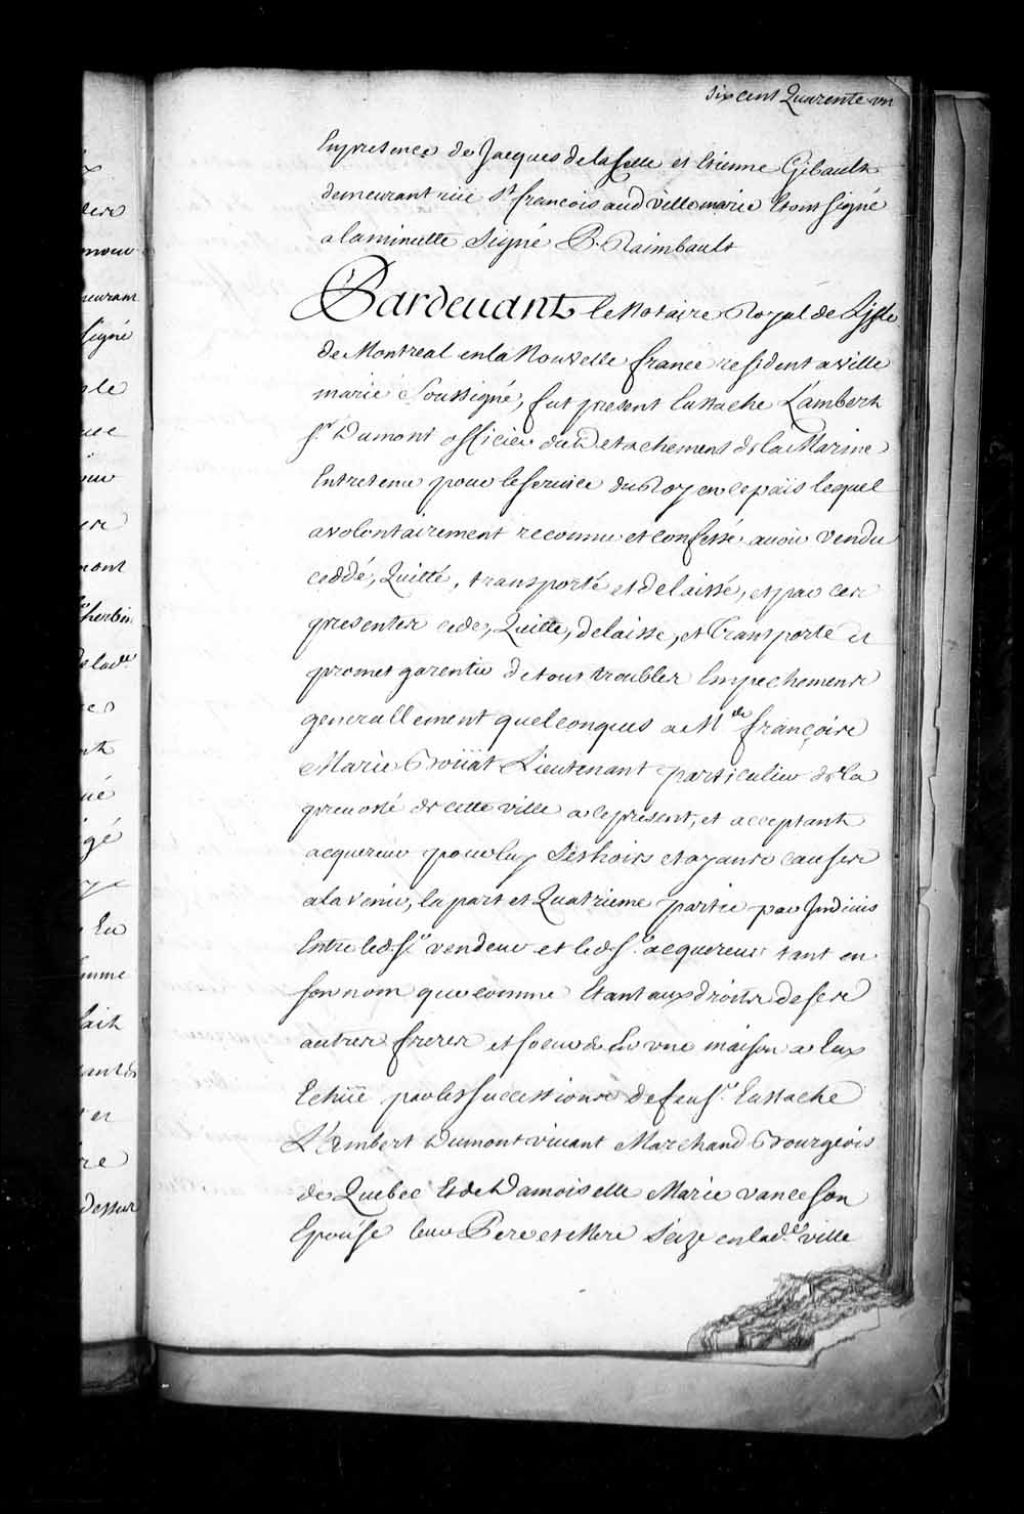 six cent Quarente un
En presence de Jacques de la Selle et Etienne Gibault
demeurant rüe St. francois aud villemarie Et ont signé
a la minutte Signé P. Raimbault
Pardevant le Notaire Royal de L'jsle
de Montreal en la Nouvelle france resident a ville
marie Soussigné, fut present Eustache L'ambert
sr. Dumont officier du Detachement de la Marine
Entretenu pour le service du Roy en ce païs lequel
a volontairement reconnu et confessé avoir vendu
ceddé, Quitté, transporté et delaissé, et par ces
presentes cede, Quitte, delaisse, et Transporte et
promet garentir de tous troubles Empechements
generallement quelconques a Mre françois
Marie Boüat Lieutenant particulier de la
prevosté de cette ville a ce present, et acceptant
acquereur pour luy Ses hoirs et ayans cause
a lavenir, la part et Quatrieme partie par Indivis
Entre led. Sr. vendeur et led. Sr. acquereur tant en
son nom que comme Etant aux droits de ses
autres freres et soeur de En une maison a Eux
Echüe par les successions de feu Sr. Eustache
L'Ambert Dumont vivant Marchand Bourgeois
de Quebec Et de Damoiselle Marie vanneson
Epouse leur Pere et Mere Seize en lad.e ville
dere
meurant
signé
ple
mont
herbin
de lad.te
es
nt
né
gé
En
emme
fait
er
re
dessus